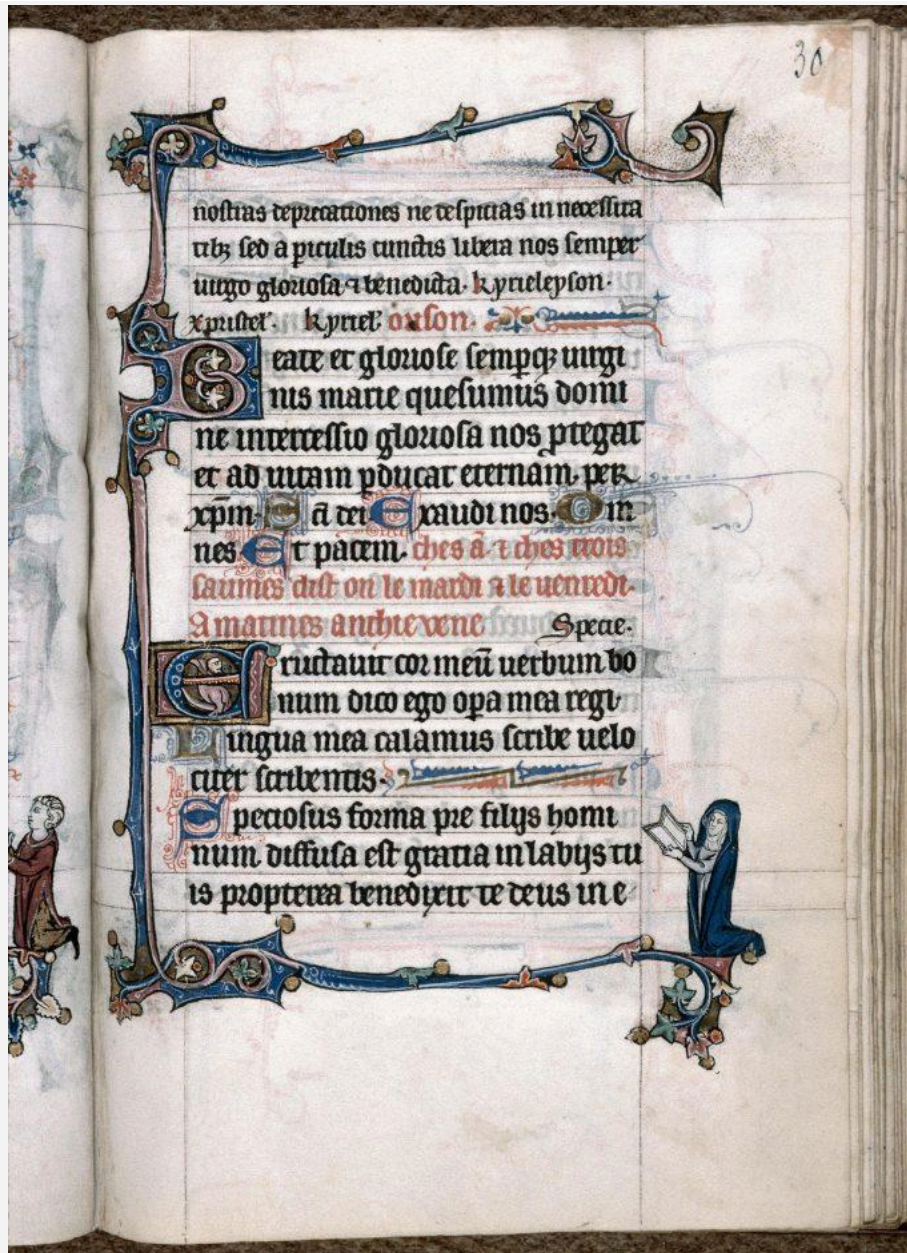 30
nostras deprecationes ne despicias in necessita
tibꝫ sed a ꝑiculis cunctis libera nos semper
uirgo gloriosa ⁊ benedicta. kyrieleyson.
xpistel'. kyriel' orison.
Beate et gloriose sempqꝫ uirgi
nis marie quesumus domi
ne intercessio gloriosa nos ꝓtegat
et ad uitam ꝑducat eternam. per
xp̄m. ā dei Exaudi nos. Om
nes. Et pacem. ches ā. ⁊ ches trois
saumes dist on le mardi ⁊ le uenredi.
A matines anthievene Specie.
Eructauit cor meū uerbum bo
num dico ego opa mea regi.
Lingua mea calamus scribe uelo
citer scribentis.
Speciosus forma pre filijs homi
num. diffusa est gratia in labijs tu
is propterea benedixit te deus in e